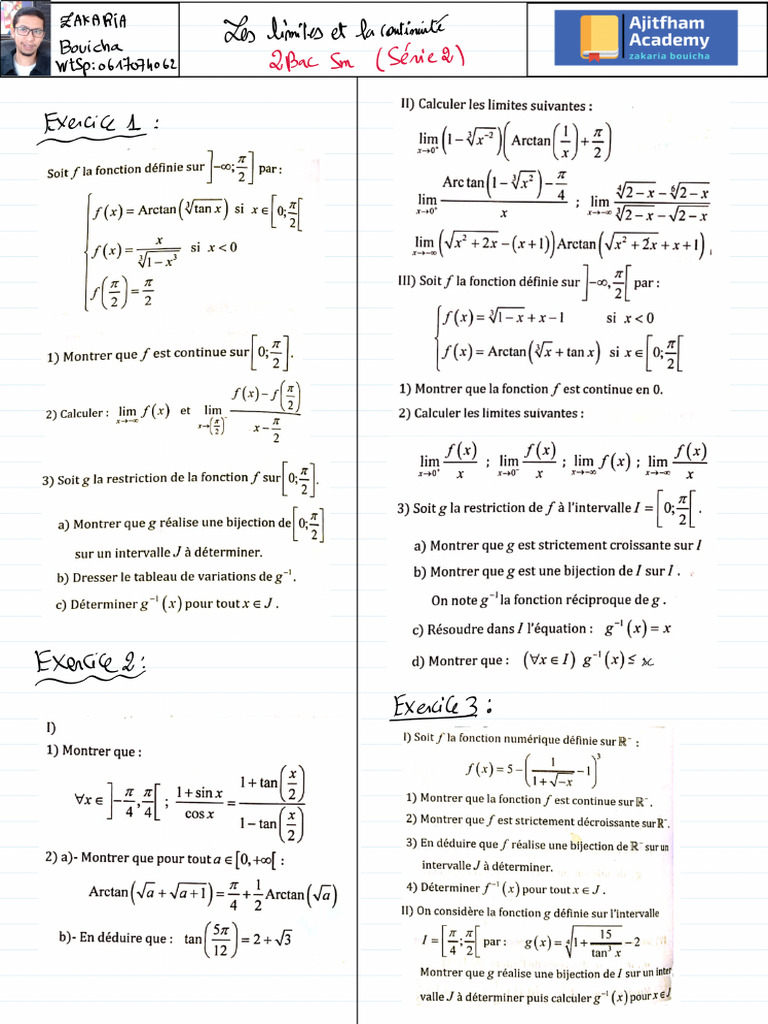 ZAKARIA
Bouicha
WtSp: 0617074062
Les limites et la continuité
2Bac Sm (Série 2)
Ajitfham
Academy
zakaria bouicha
Exercice 1 :
Soit f la fonction définie sur ]-∞; π/2] par :
f(x) = Arctan(∛(tan x)) si x ∈ [0; π/2[
f(x) = x / ∛(1-x³) si x < 0
f(π/2) = π/2
1) Montrer que f est continue sur [0; π/2].
2) Calculer : lim_{x→-∞} f(x) et lim_{x→(π/2)⁻} (f(x) - f(π/2)) / (x - π/2)
3) Soit g la restriction de la fonction f sur [0; π/2].
a) Montrer que g réalise une bijection de [0; π/2]
sur un intervalle J à déterminer.
b) Dresser le tableau de variations de g⁻¹.
c) Déterminer g⁻¹(x) pour tout x ∈ J .
Exercice 2 :
I)
1) Montrer que :
∀x ∈ ]-π/4, π/4[ ; (1 + sin x) / cos x = (1 + tan(x/2)) / (1 - tan(x/2))
2) a)- Montrer que pour tout a ∈ [0, +∞[ :
Arctan(√a + √(a+1)) = π/4 + 1/2 Arctan(√a)
b)- En déduire que : tan(5π/12) = 2 + √3
II) Calculer les limites suivantes :
lim_{x→0⁺} (1 - ∛(x⁻²)) (Arctan(1/x) + π/2)
lim_{x→0⁺} (Arc tan(1 - ∛(x²)) - π/4) / x ; lim_{x→-∞} (∜(2-x) - ⁶√(2-x)) / (∛(2-x) - √(2-x))
lim_{x→-∞} (√(x² + 2x) - (x+1)) Arctan(√(x² + 2x) + x + 1) ,
III) Soit f la fonction définie sur ]-∞, π/2[ par :
f(x) = ∛(1-x) + x - 1 si x < 0
f(x) = Arctan(∛x + tan x) si x ∈ [0; π/2[
1) Montrer que la fonction f est continue en 0.
2) Calculer les limites suivantes :
lim_{x→0⁺} f(x)/x ; lim_{x→0⁻} f(x)/x ; lim_{x→-∞} f(x) ; lim_{x→-∞} f(x)/x
3) Soit g la restriction de f à l'intervalle I = [0; π/2[ .
a) Montrer que g est strictement croissante sur I
b) Montrer que g est une bijection de I sur I .
On note g⁻¹ la fonction réciproque de g .
c) Résoudre dans I l'équation : g⁻¹(x) = x
d) Montrer que : (∀x ∈ I) g⁻¹(x) ≤ x
Exercice 3 :
I) Soit f la fonction numérique définie sur ℝ⁻ :
f(x) = 5 - (1/(1+√-x) - 1)³
1) Montrer que la fonction f est continue sur ℝ⁻.
2) Montrer que f est strictement décroissante sur ℝ⁻.
3) En déduire que f réalise une bijection de ℝ⁻ sur un
intervalle J à déterminer.
4) Déterminer f⁻¹(x) pour tout x ∈ J .
II) On considère la fonction g définie sur l'intervalle
I = [π/4; π/2[ par : g(x) = ∜(1 + 15/tan³ x) - 2
Montrer que g réalise une bijection de I sur un inter
valle J à déterminer puis calculer g⁻¹(x) pour x ∈ J